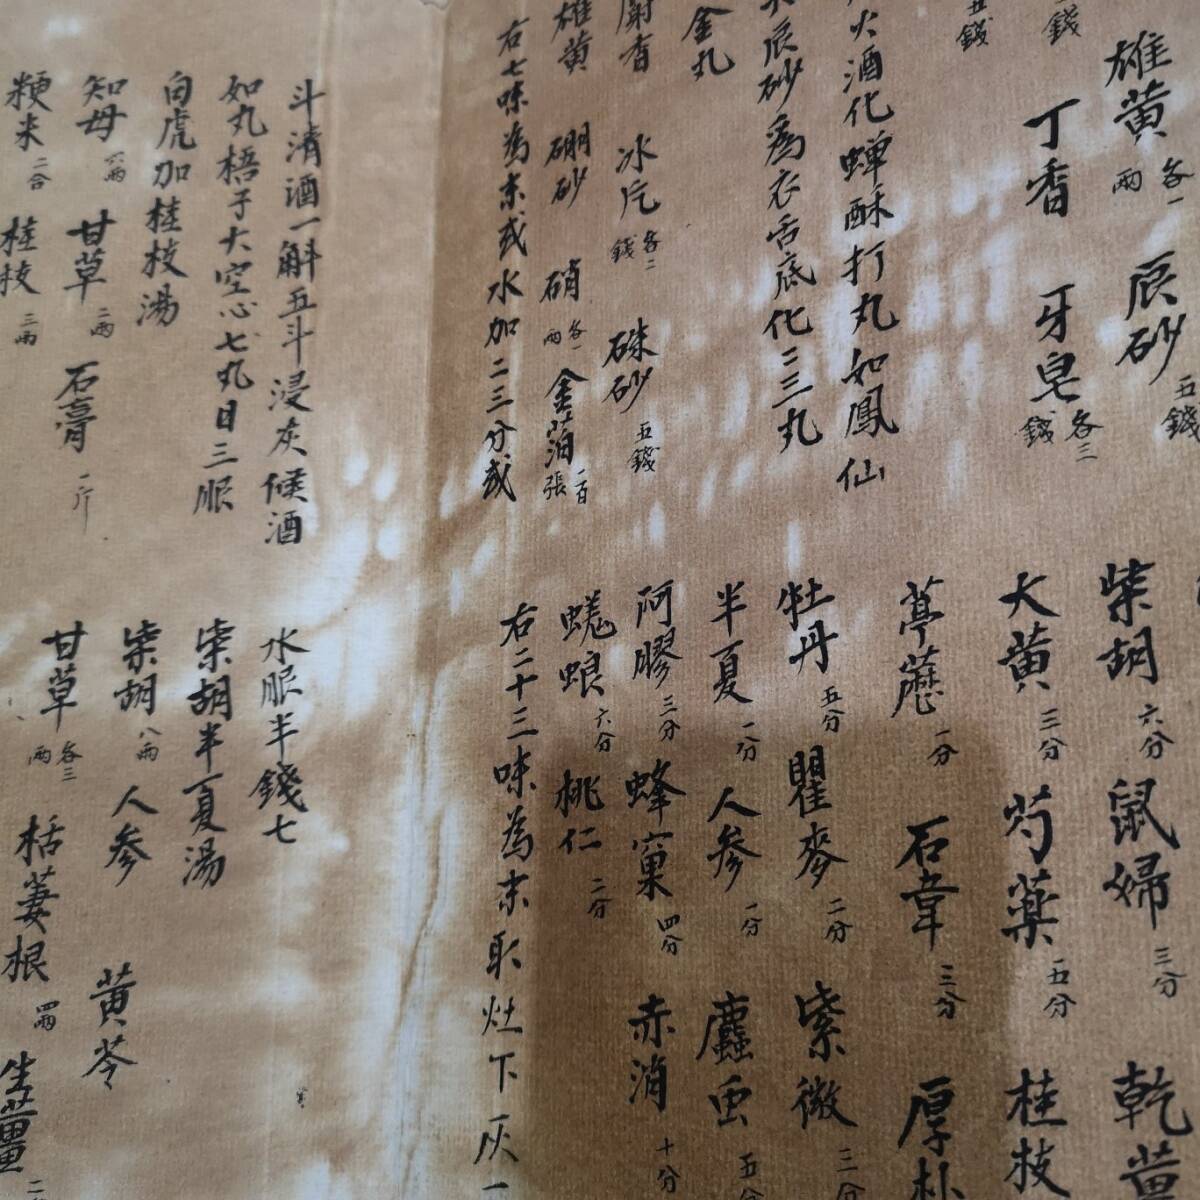 雄黃 各一兩 辰砂 五錢
錢 丁香 牙皂 各三錢
五錢
火酒化蟬酥打丸如鳳仙
辰砂為衣舌底化三三丸
金丸
麝香 冰片 各二錢 硃砂 五錢
雄黃 硼砂 硝 各一兩 金箔 一百張
右七味為末或水加二三分或
柴胡 六分 鼠婦 三分 乾薑
大黃 三分 芍藥 五分 桂枝
葶藶 一分 石韋 三分 厚朴
牡丹 五分 瞿麥 二分 紫微 三分
半夏 一分 人參 一分 䗪虫 五分
阿膠 三分 蜂窠 四分 赤消 十分
蜣蜋 六分 桃仁 二分
右二十三味為末取灶下灰一
斗清酒一斛五斗浸灰候酒
如丸梧子大空心七丸日三服
白虎加桂枝湯
知母 六兩 甘草 二兩 石膏 一斤
粳米 二合 桂枝 三兩
水服半錢七
柴胡半夏湯
柴胡 八兩 人參 黃芩
甘草 各三兩 栝蔞根 四兩 生薑 二